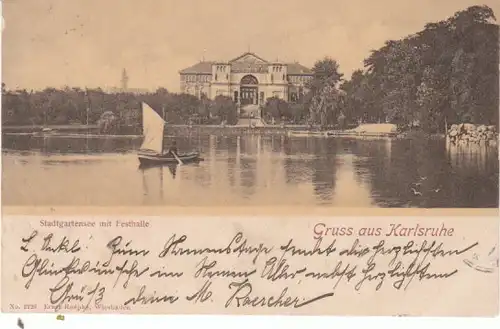 Stadtgartensee mit Festhalle
Gruss aus Karlsruhe
L. Onkel! Zum Namenstage sendet die herzlichsten
Glückwünsche im Namen Aller, nebst herzlichsten
Gruß deine M. Roescher
No. 2728 Ernst Roepke, Wiesbaden